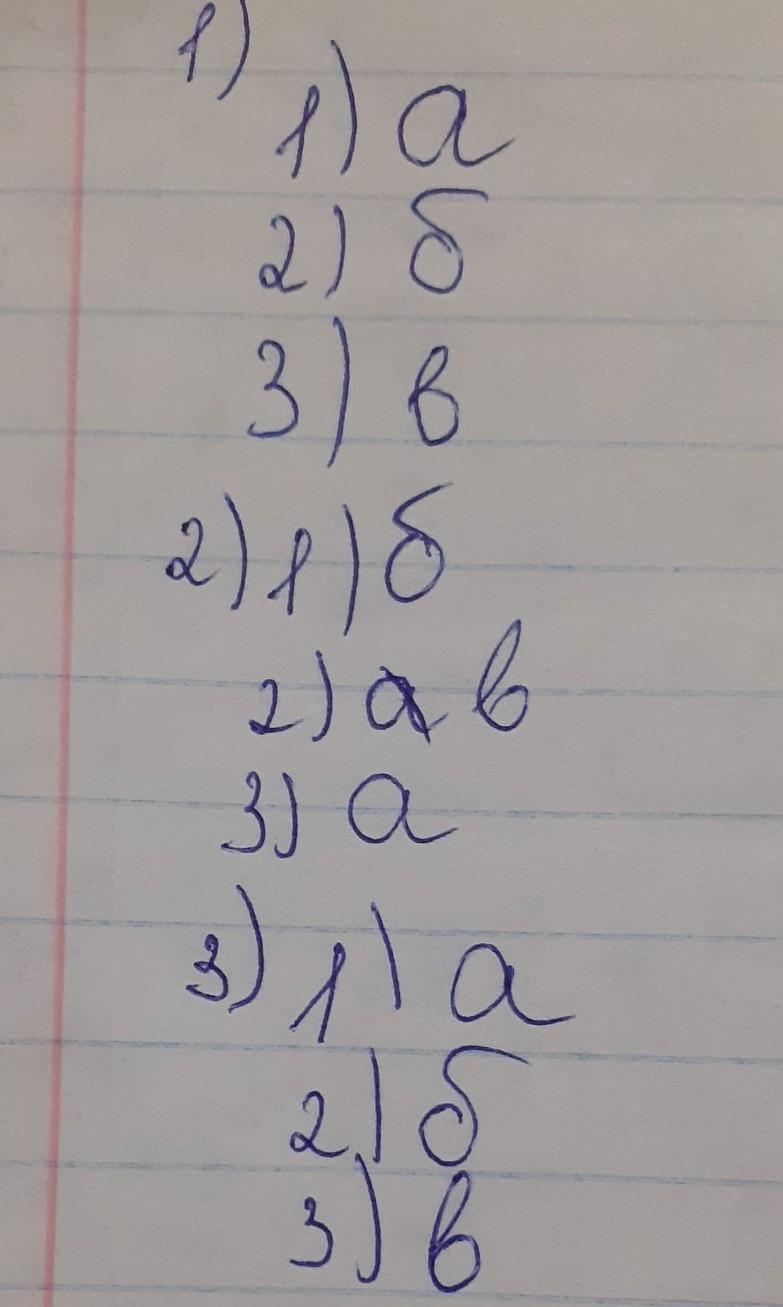 1)
1) а
2) б
3) в
2) 1) б
2) а в
3) а
3) 1) а
2) б
3) в